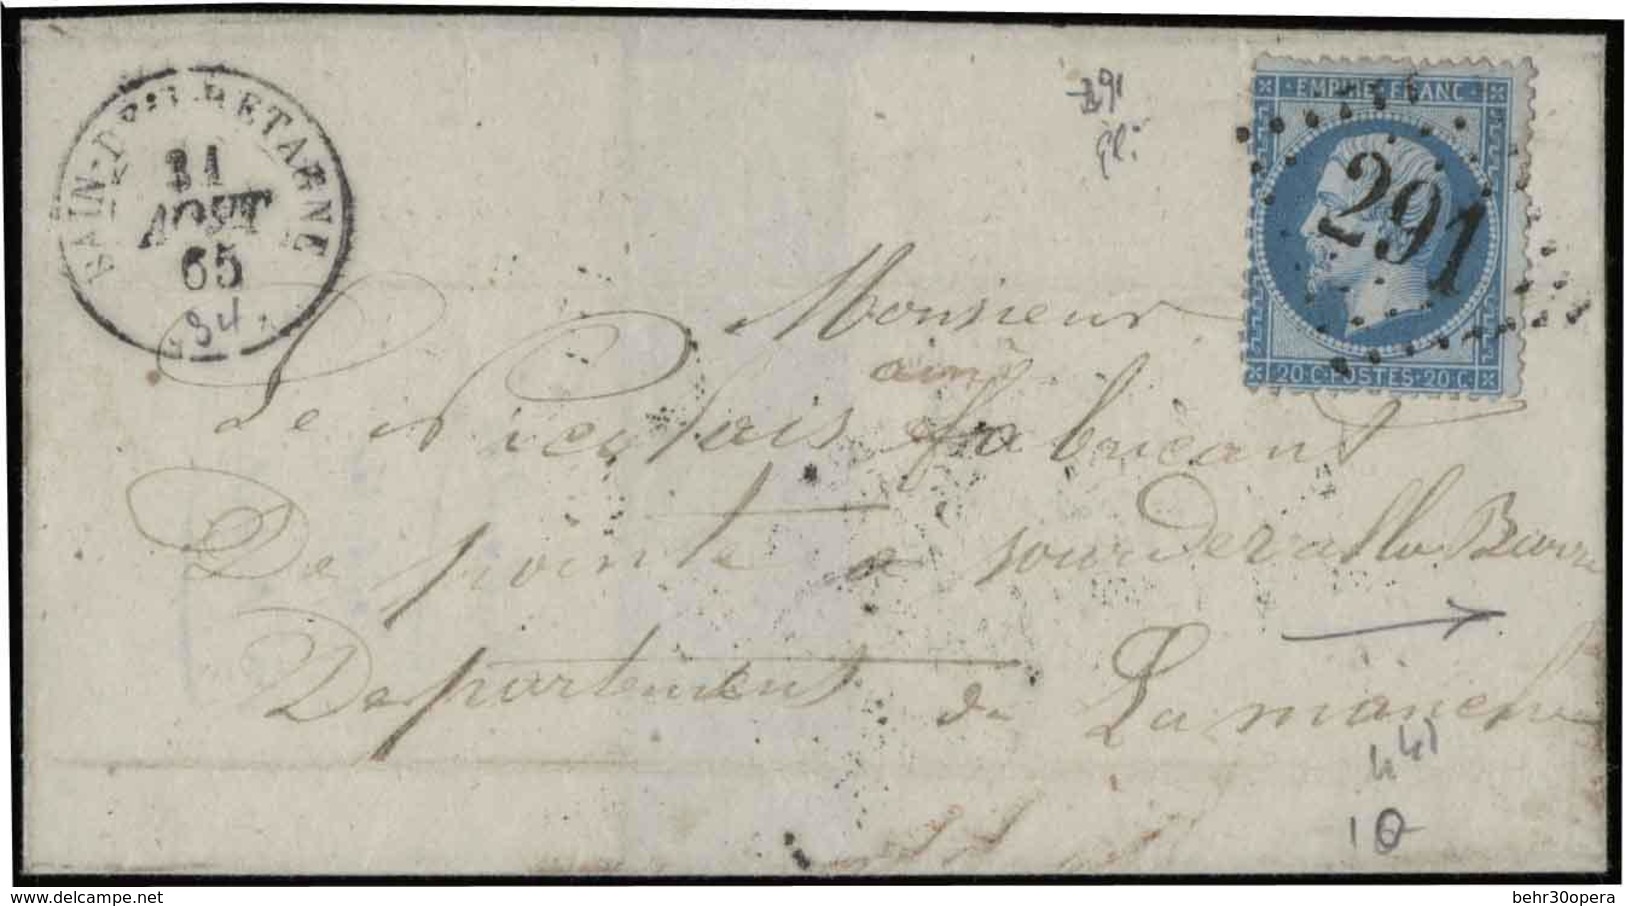 BAIN-DE-BRETAGNE
31
AOUT
65
34
291
EMPIRE FRANC
291
20 C POSTES 20 C
Monsieur
ainé
Le Nicolais fabricant
De pointe a sourdevalle Barre
Departement de La manche
10
www.delcampe.net
behr30opera